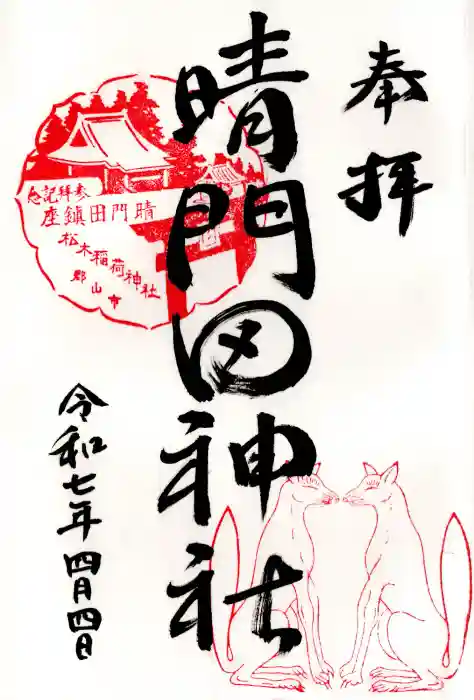 奉拝
晴門田神社
参拝記念
晴門田鎮座
松木稲荷神社
郡山市
令和七年四月四日